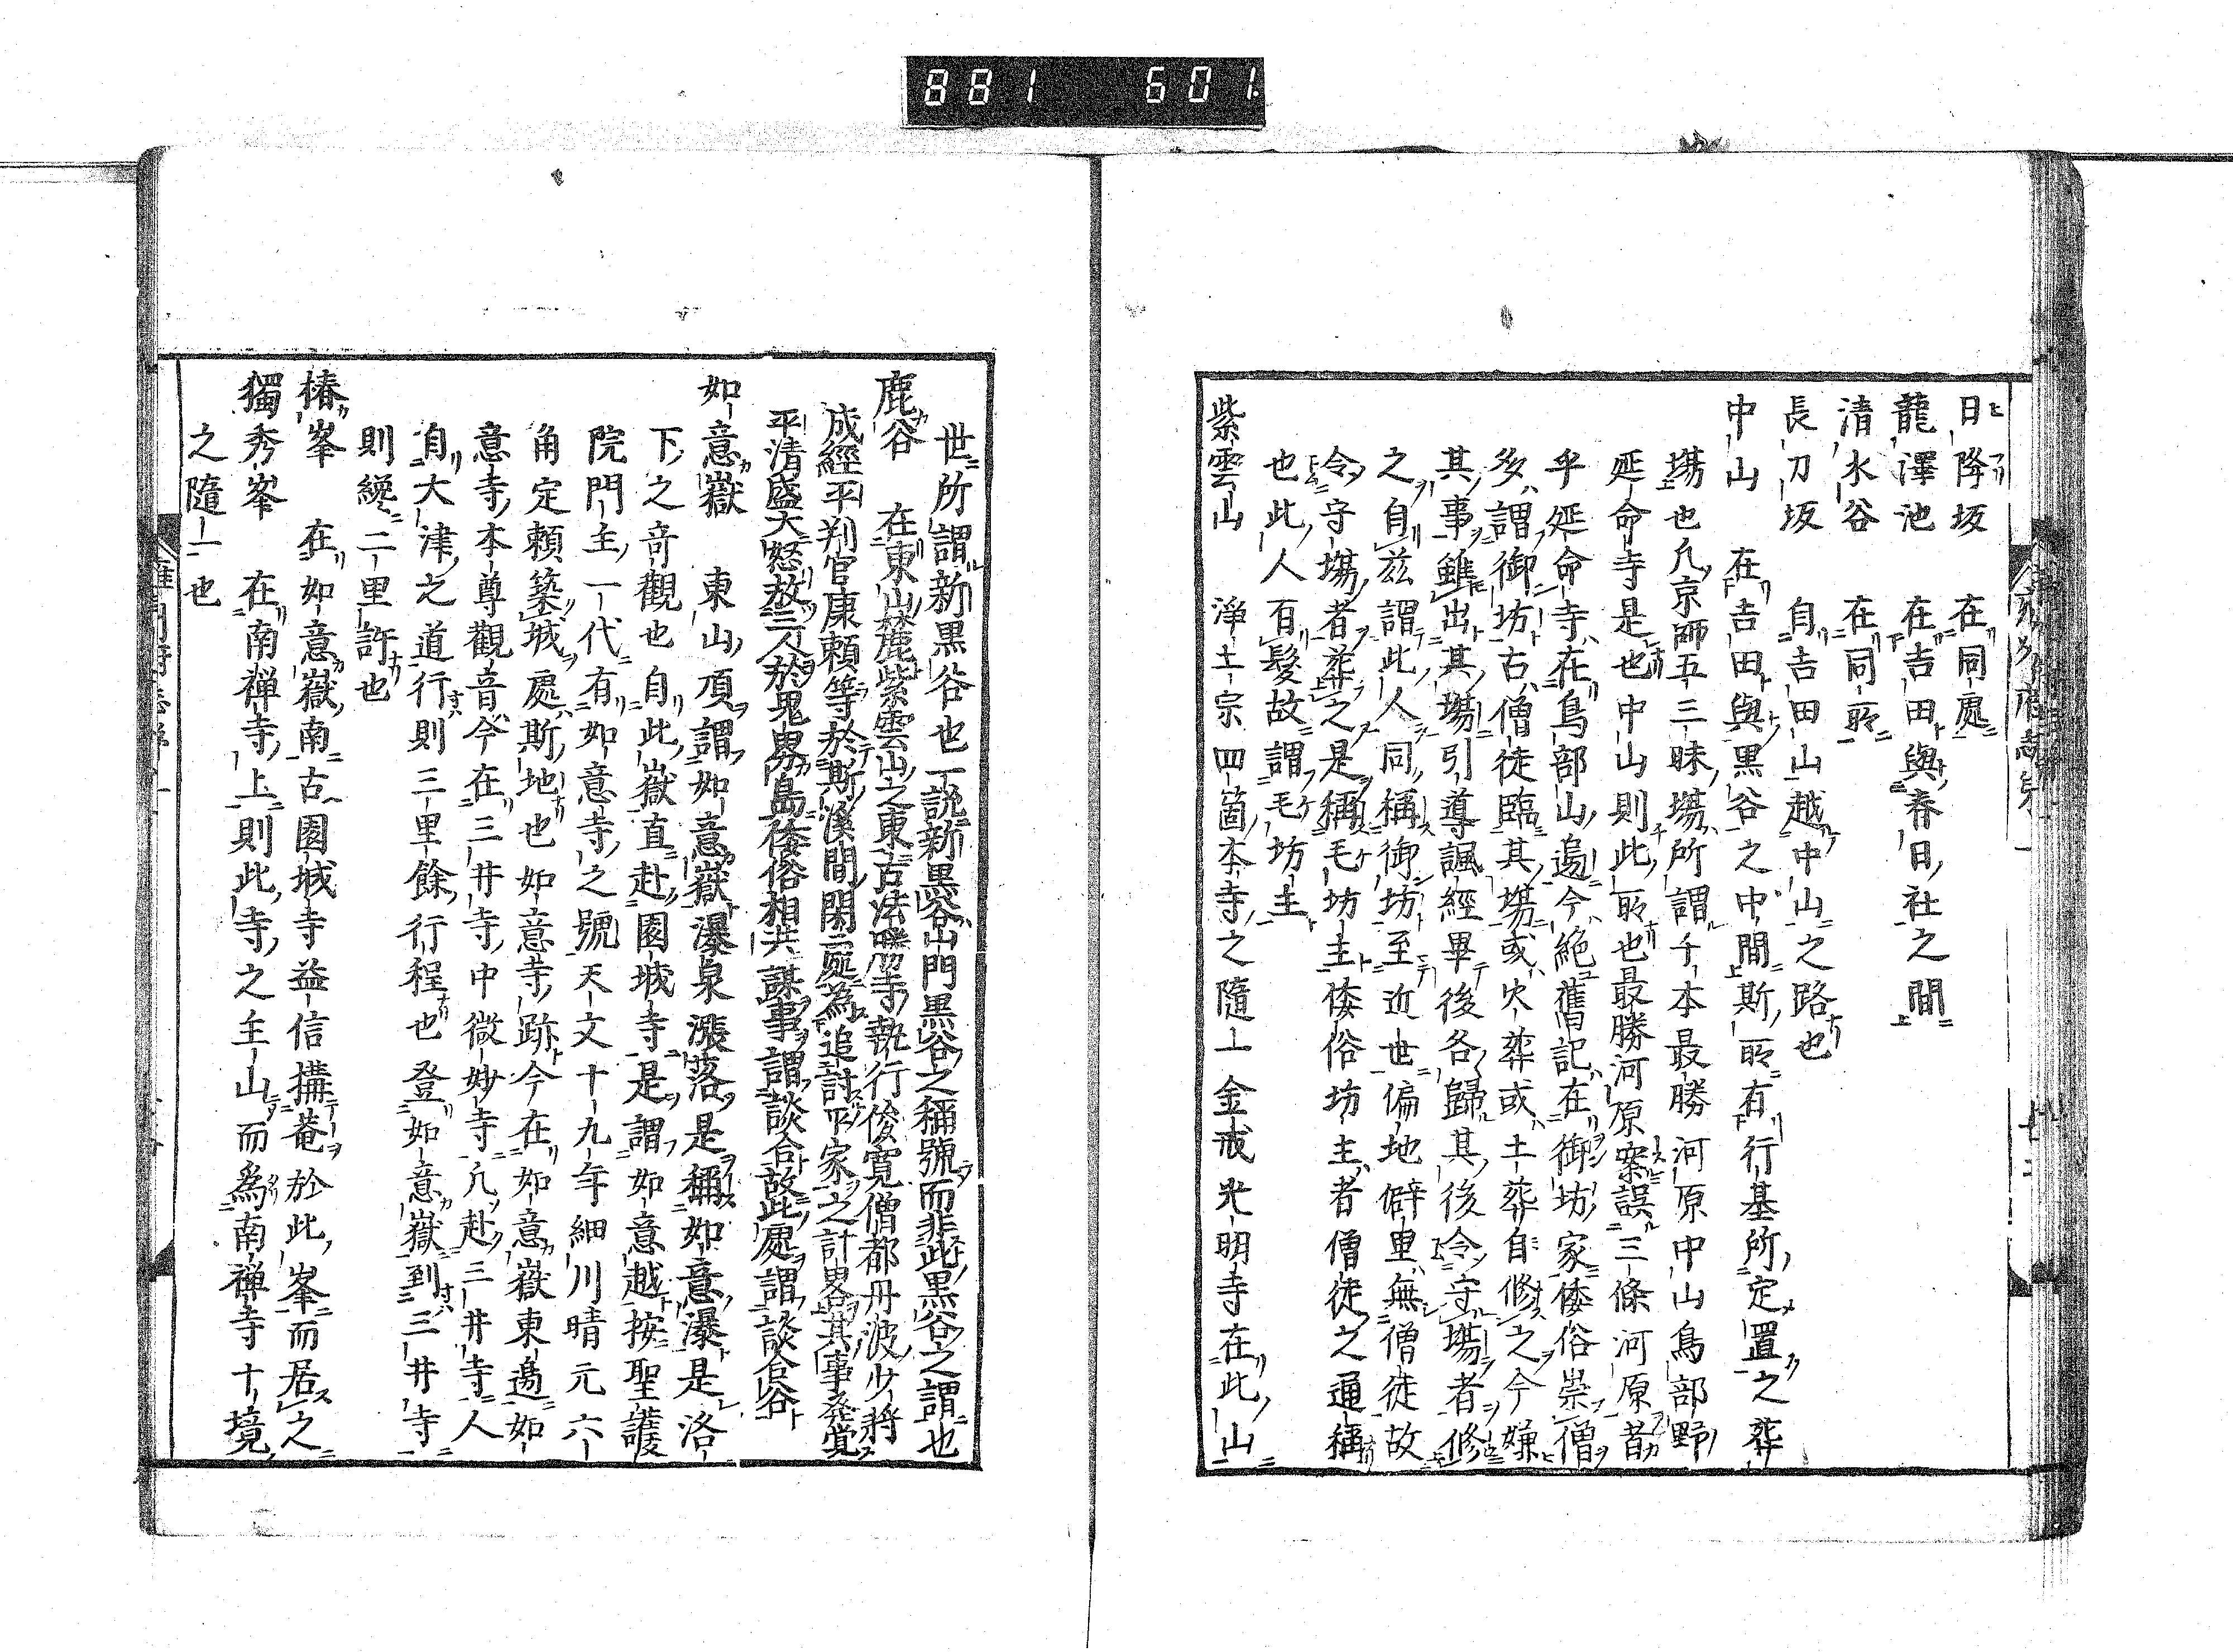 881 601
日降坂 在同處
龍澤池 在吉田與春日社之間
清水谷 在同所
長刀坂 自吉田山越中山之路也
中山 在吉田與黒谷之中間斯所有行基所定置之葬
塲也凢京師五三昧塲所謂千本最勝河原中山鳥部野
延命寺是也中山則此所也最勝河原案誤三條河原昔
乎延命寺在鳥部山邉今絶舊記在御坊家倭俗崇僧
多謂御坊古僧徒臨其塲或火葬或土葬自修之今嫌
其事雖出其塲引導諷經畢後各歸其後令守塲者修
之自兹謂此人同稱御坊至近世偏地僻里無僧徒故
令守塲者葬之是稱毛坊主倭俗坊主者僧徒之通稱
也此人有髮故謂毛坊主
紫雲山 淨土宗四箇本寺之隨一金戒光明寺在此山
世所謂新黒谷也一説新黒谷山門黒谷之稱號而非此黒谷之謂也
鹿谷 在東山麓紫雲山之東古法勝寺執行俊寛僧都丹波少将
成經平判官康頼等於斯溪間閑處為追討平家之計畧其事発覚
平清盛大怒放三人於鬼界島倭俗相共謀事謂談合故此處謂談合谷
如意嶽 東山頂謂如意嶽瀑泉漲落是稱如意瀑是洛
下之竒觀也自此嶽直赴園城寺是謂如意越按聖護
院門主一代有如意寺之號天文十九年細川晴元六
角定頼築城處斯地也如意寺跡今在如意嶽東邉如
意寺本尊觀音今在三井寺中微妙寺凢赴三井寺人
自大津之道行則三里餘行程也登如意嶽到三井寺
則纔二里許也
椿峯 在如意嶽南古園城寺益信搆菴於此峯而居之
獨秀峯 在南禅寺上則此寺之主山而爲南禅寺十境
之隨一也